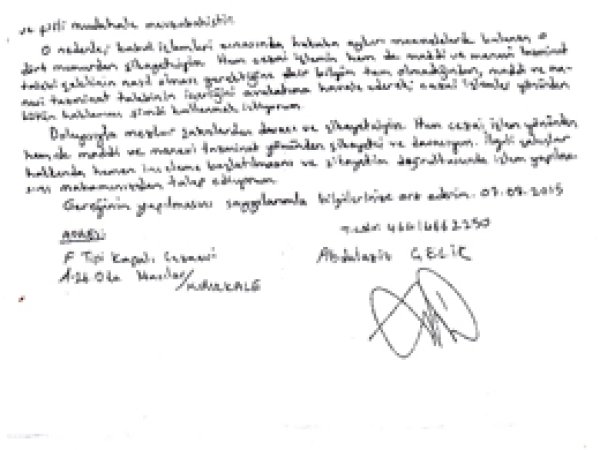 ve fiili müdahale mevzubahistir.
O nedenle; kabul işlemleri sırasında hukuka aykırı muamelelerde bulunan o
dört memurdan şikayetçiyim. Hem cezai işlemin hem de maddi ve manevi tazminat
talebi şeklinin nasıl olması gerektiğine dair bilgim tam olmadığından, maddi ve ma-
nevi tazminat talebinin içeriğini avukatıma havale ederek; cezai işlemler yönünden
bütün haklarımı şimdi kullanmak istiyorum.
Dolayısıyla mezkur şahıslardan davacı ve şikayetçiyim. Hem cezai işlem yönünden
hem de maddi ve manevi tazminat yönünden şikayetçi ve davacıyım. İlgili şahıslar
hakkında hemen inceleme başlatılmasını ve şikayetim doğrultusunda işlem yapılma-
sını makamınızdan talep ediyorum.
Gereğinin yapılmasını saygılarımla bilgilerinize arz ederim. 07.07.2015
ADRES:
F Tipi Kapalı Cezaevi
A-26 Oda Hacılar/KIRIKKALE
Abdulaziz ÇELİK